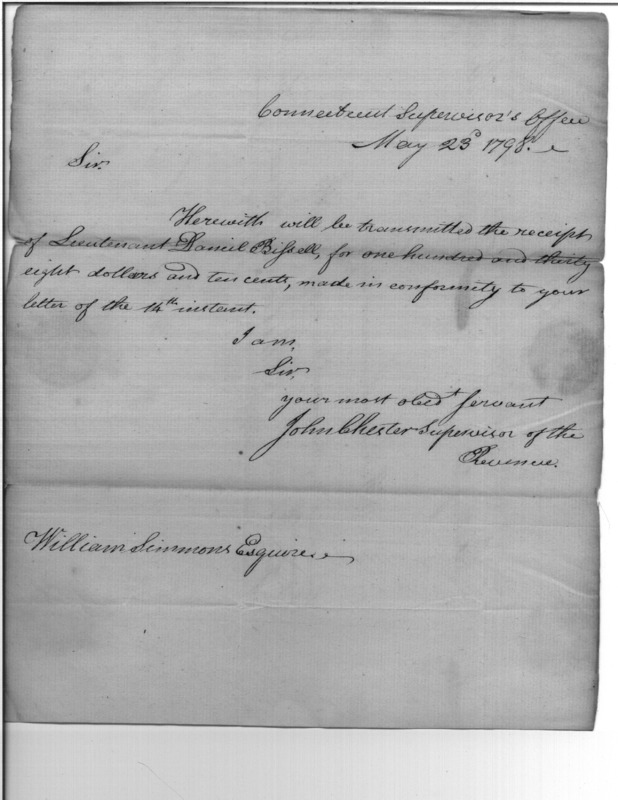 Connecticut Supervisor's Office
May 23d 1798.
Sir.
Herewith will be transmitted the receipt
of Lieutenant Daniel Bissell, for one hundred and thirty
eight dollars and ten cents, made in conformity to your
letter of the 14th instant.
I am,
Sir,
your most obedt servant
John Chester Supervisor of the
Revenue.
William Simmons Esquire